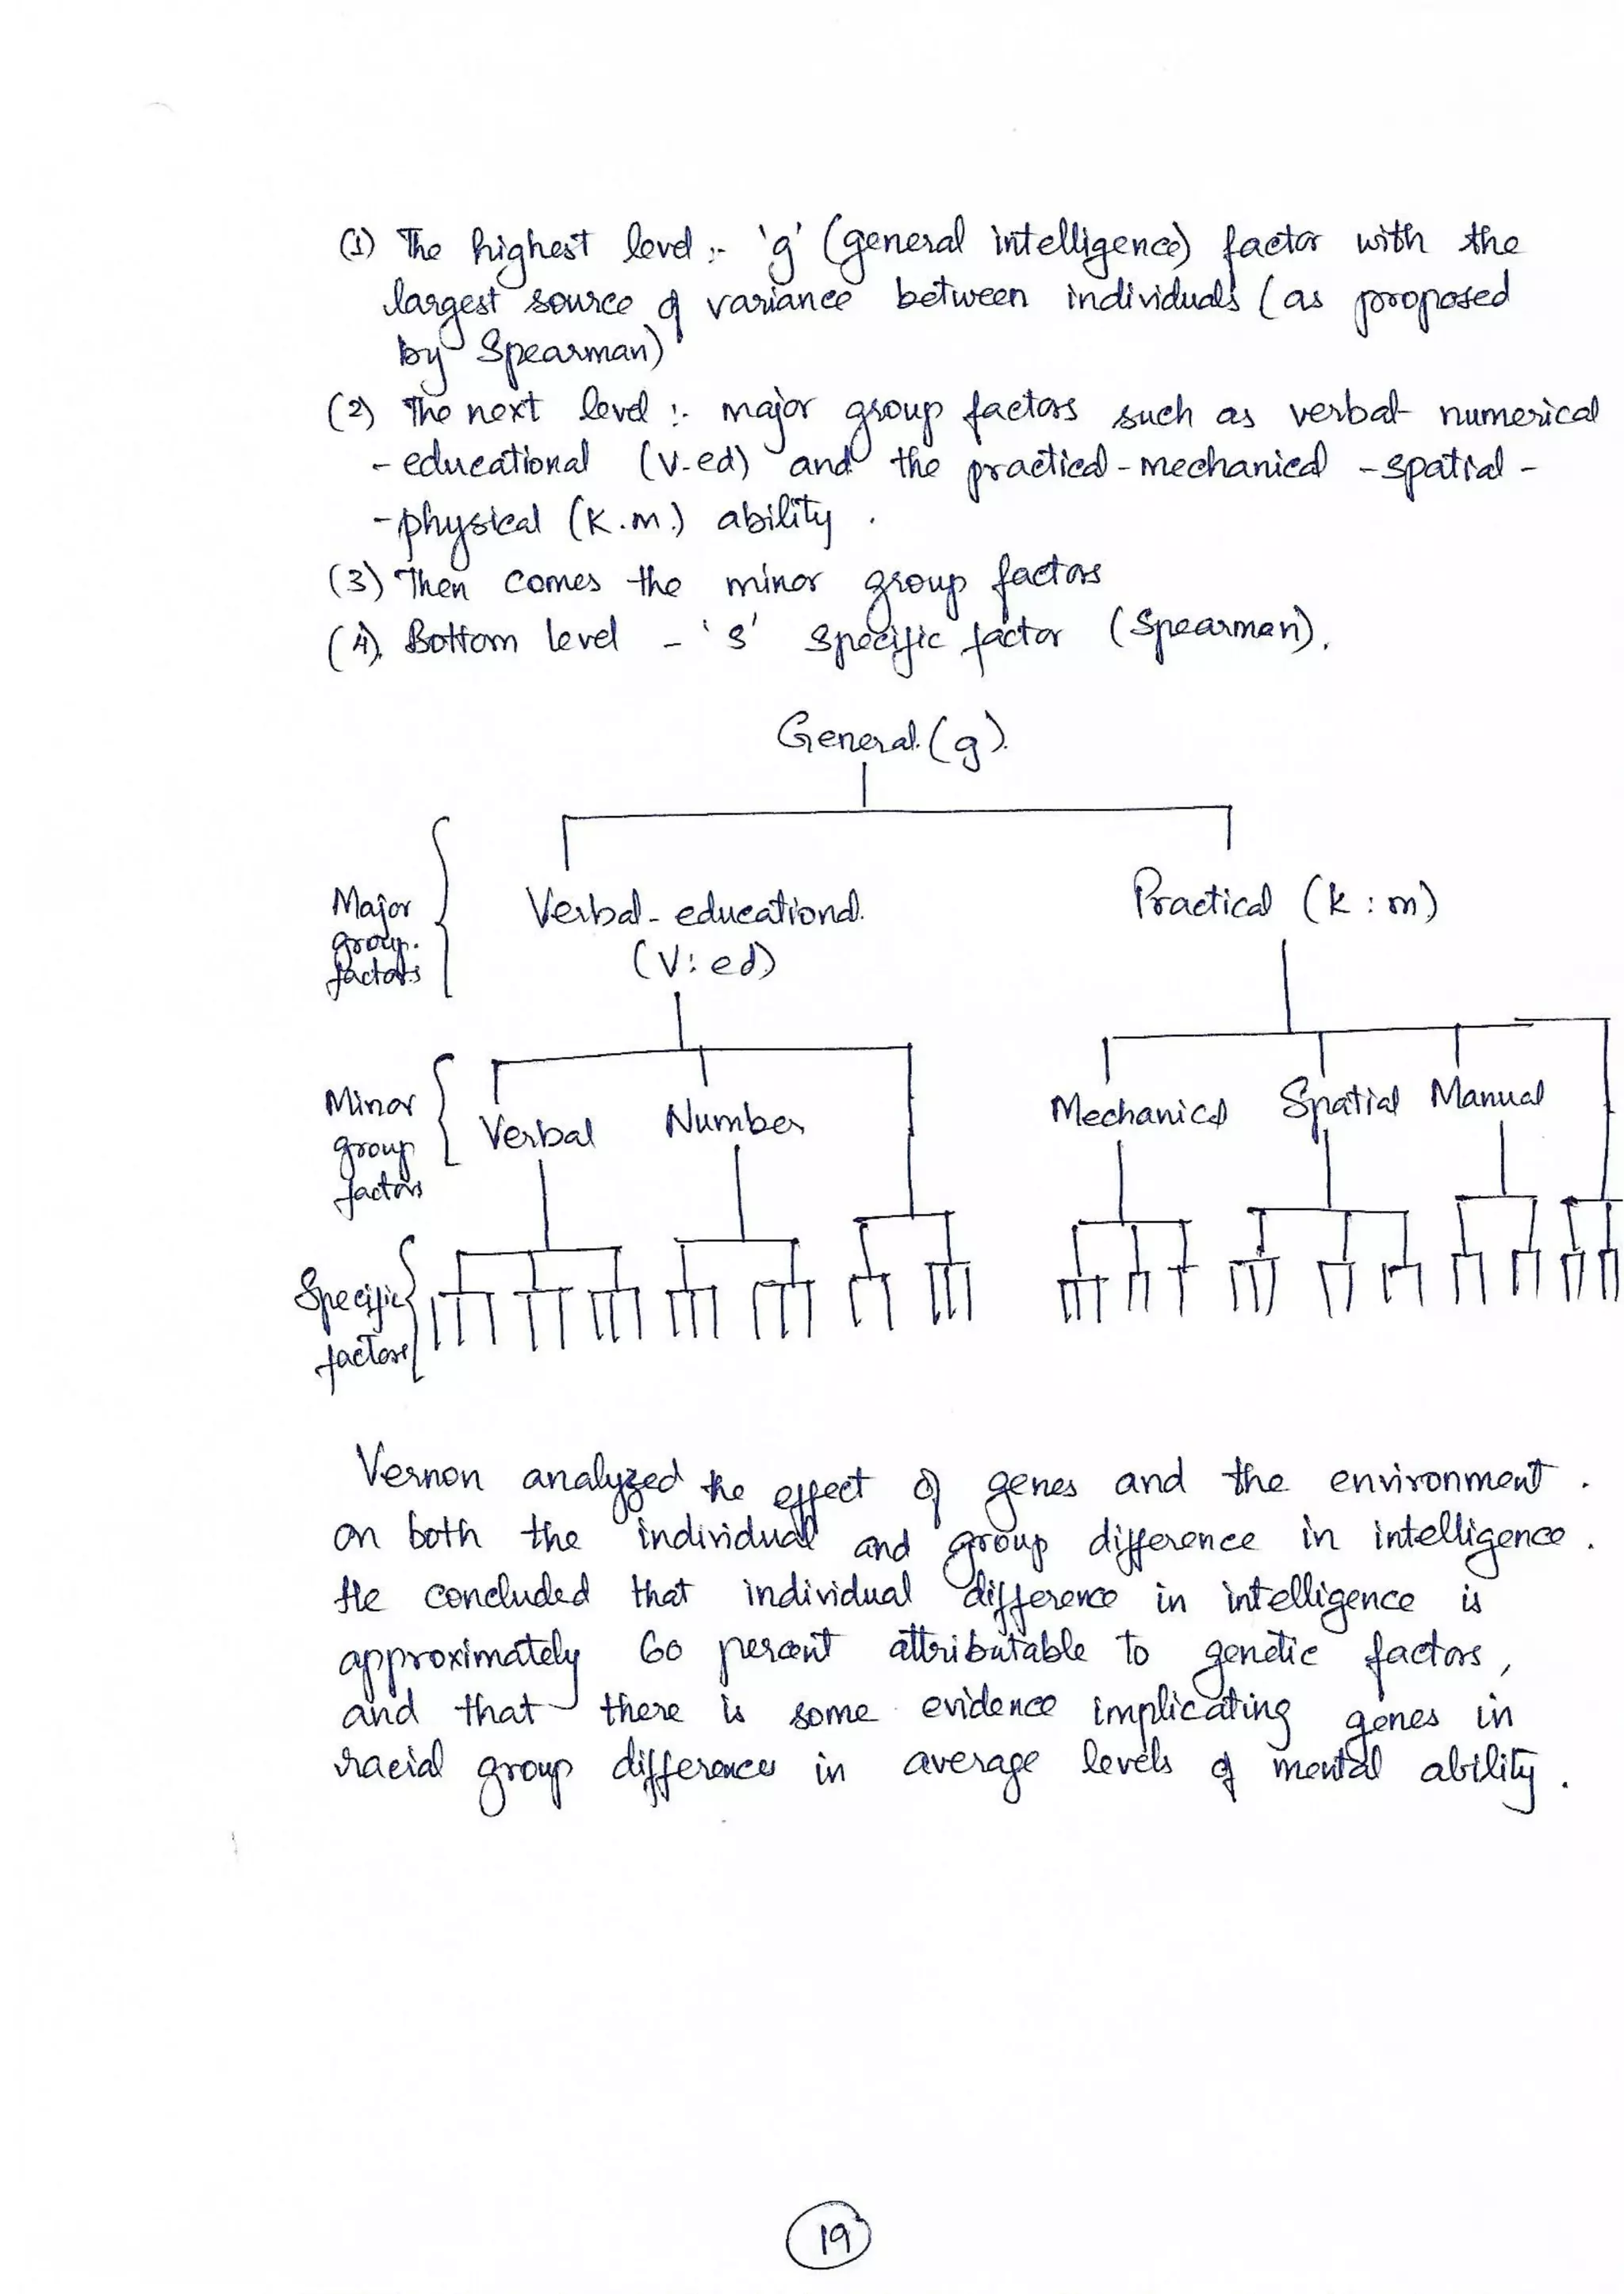 (1) The highest level :- 'g' (general intelligence) factor with the
largest source of variance between individuals (as proposed
by Spearman)
(2) The next level :- major group factors such as verbal- numerical
- educational (v-ed) and the practical - mechanical - spatial -
- physical (K.m.) ability .
(3) Then comes the minor group factors
(4). Bottom level - 's' specific factor (Spearman).
General (g).
Major
group.
factors
Verbal - educational.
(V: ed)
Practical (k : m)
Minor
group
factors
Verbal
Number
Mechanical
Spatial
Manual
Specific
factors
Vernon analyzed the effect of genes and the environment .
on both the individual and group difference in intelligence .
He concluded that individual difference in intelligence is
approximately 60 percent attributable to genetic factors,
and that there is some evidence implicating genes in
racial group differences in average levels of mental ability .
19